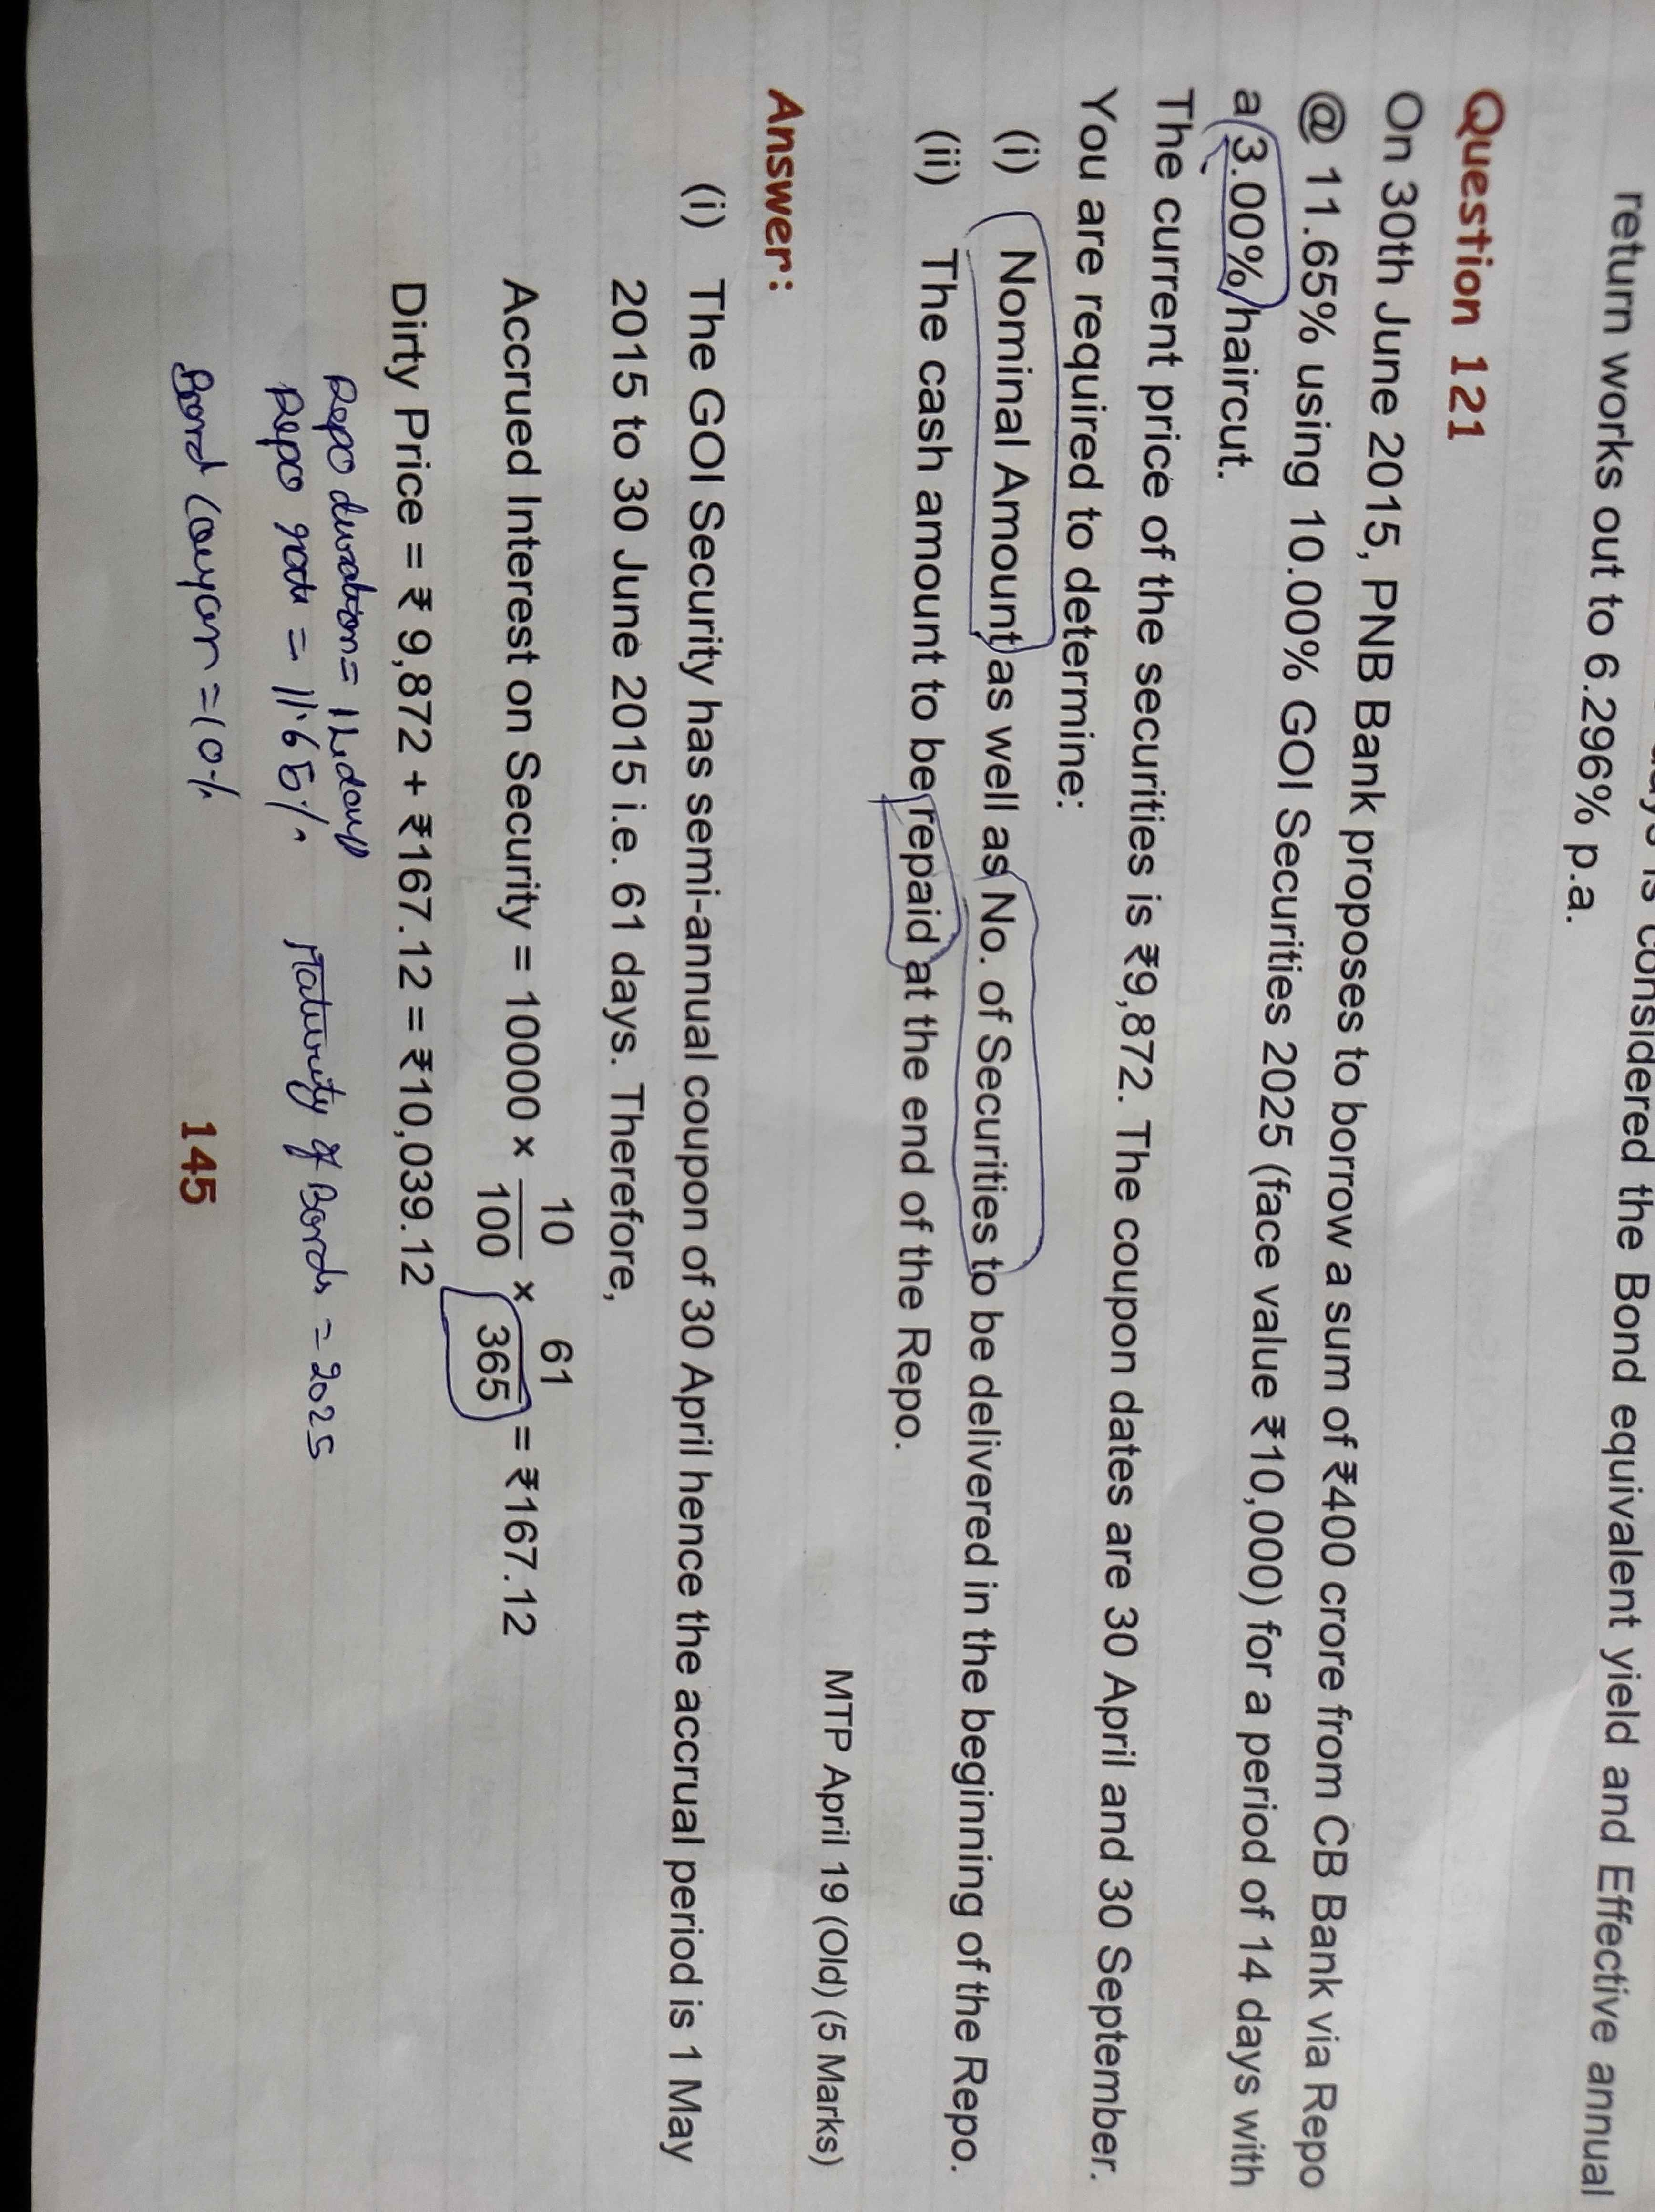 days is considered the Bond equivalent yield and Effective annual
return works out to 6.296% p.a.
Question 121
On 30th June 2015, PNB Bank proposes to borrow a sum of ₹400 crore from CB Bank via Repo
@ 11.65% using 10.00% GOI Securities 2025 (face value ₹10,000) for a period of 14 days with
a 3.00% haircut.
The current price of the securities is ₹9,872. The coupon dates are 30 April and 30 September.
You are required to determine:
(i) Nominal Amount as well as No. of Securities to be delivered in the beginning of the Repo.
(ii) The cash amount to be repaid at the end of the Repo.
MTP April 19 (Old) (5 Marks)
Answer:
(i) The GOI Security has semi-annual coupon of 30 April hence the accrual period is 1 May
2015 to 30 June 2015 i.e. 61 days. Therefore,
Accrued Interest on Security = 10000 × 10/100 × 61/365 = ₹167.12
Dirty Price = ₹ 9,872 + ₹167.12 = ₹10,039.12
Repo duration = 14 days
Repo rate = 11.65%.
Maturity of Bonds = 2025
Bond Coupon = 10%
145